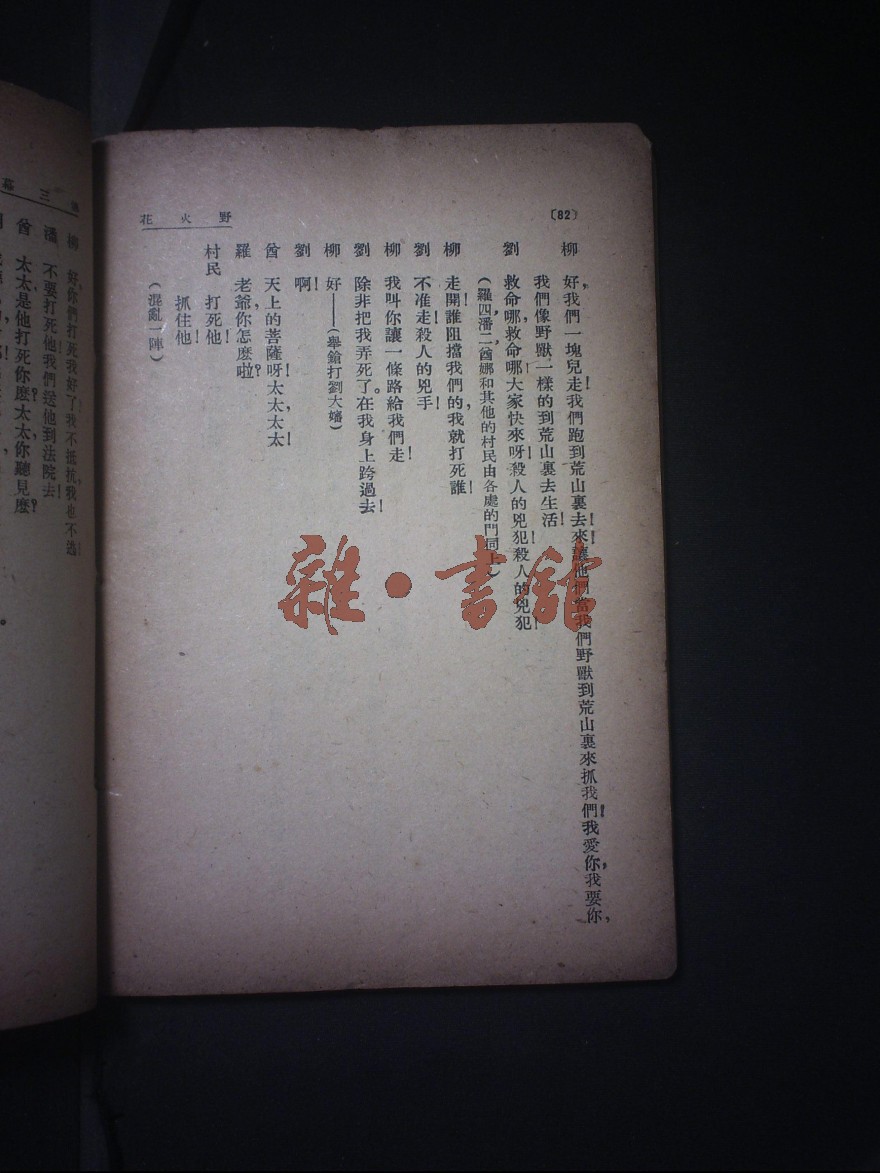 (82)
野火花
柳　好，我們一塊兒走！我們跑到荒山裏去！來！讓他們當我們野獸到荒山裏來抓我們！我愛你，我要你，
我們像野獸一樣的到荒山裏去生活！
劉　救命哪，救命哪！大家快來呀！殺人的兇犯！殺人的兇犯！
(羅四，潘二，曾娜和其他的村民由各處的門同上。)
柳　走開！誰阻擋我們的，我就打死誰！
劉　不准走！殺人的兇手！
柳　我叫你讓一條路給我們走！
劉　除非把我弄死了。在我身上跨過去！
柳　好！——(舉鎗打劉大嬸)
劉　啊！
曾　天上的菩薩呀！太太，太太！
羅　老爺，你怎麽啦？
村民　打死他！
抓住他！
(混亂一陣)
雜·書館
三幕
柳　好，你們打死我好了！我不抵抗，我也不逃！
潘　不要打死他！我們送他到法院去！
曾　太太，是他打死你麽？太太，你聽見麽？